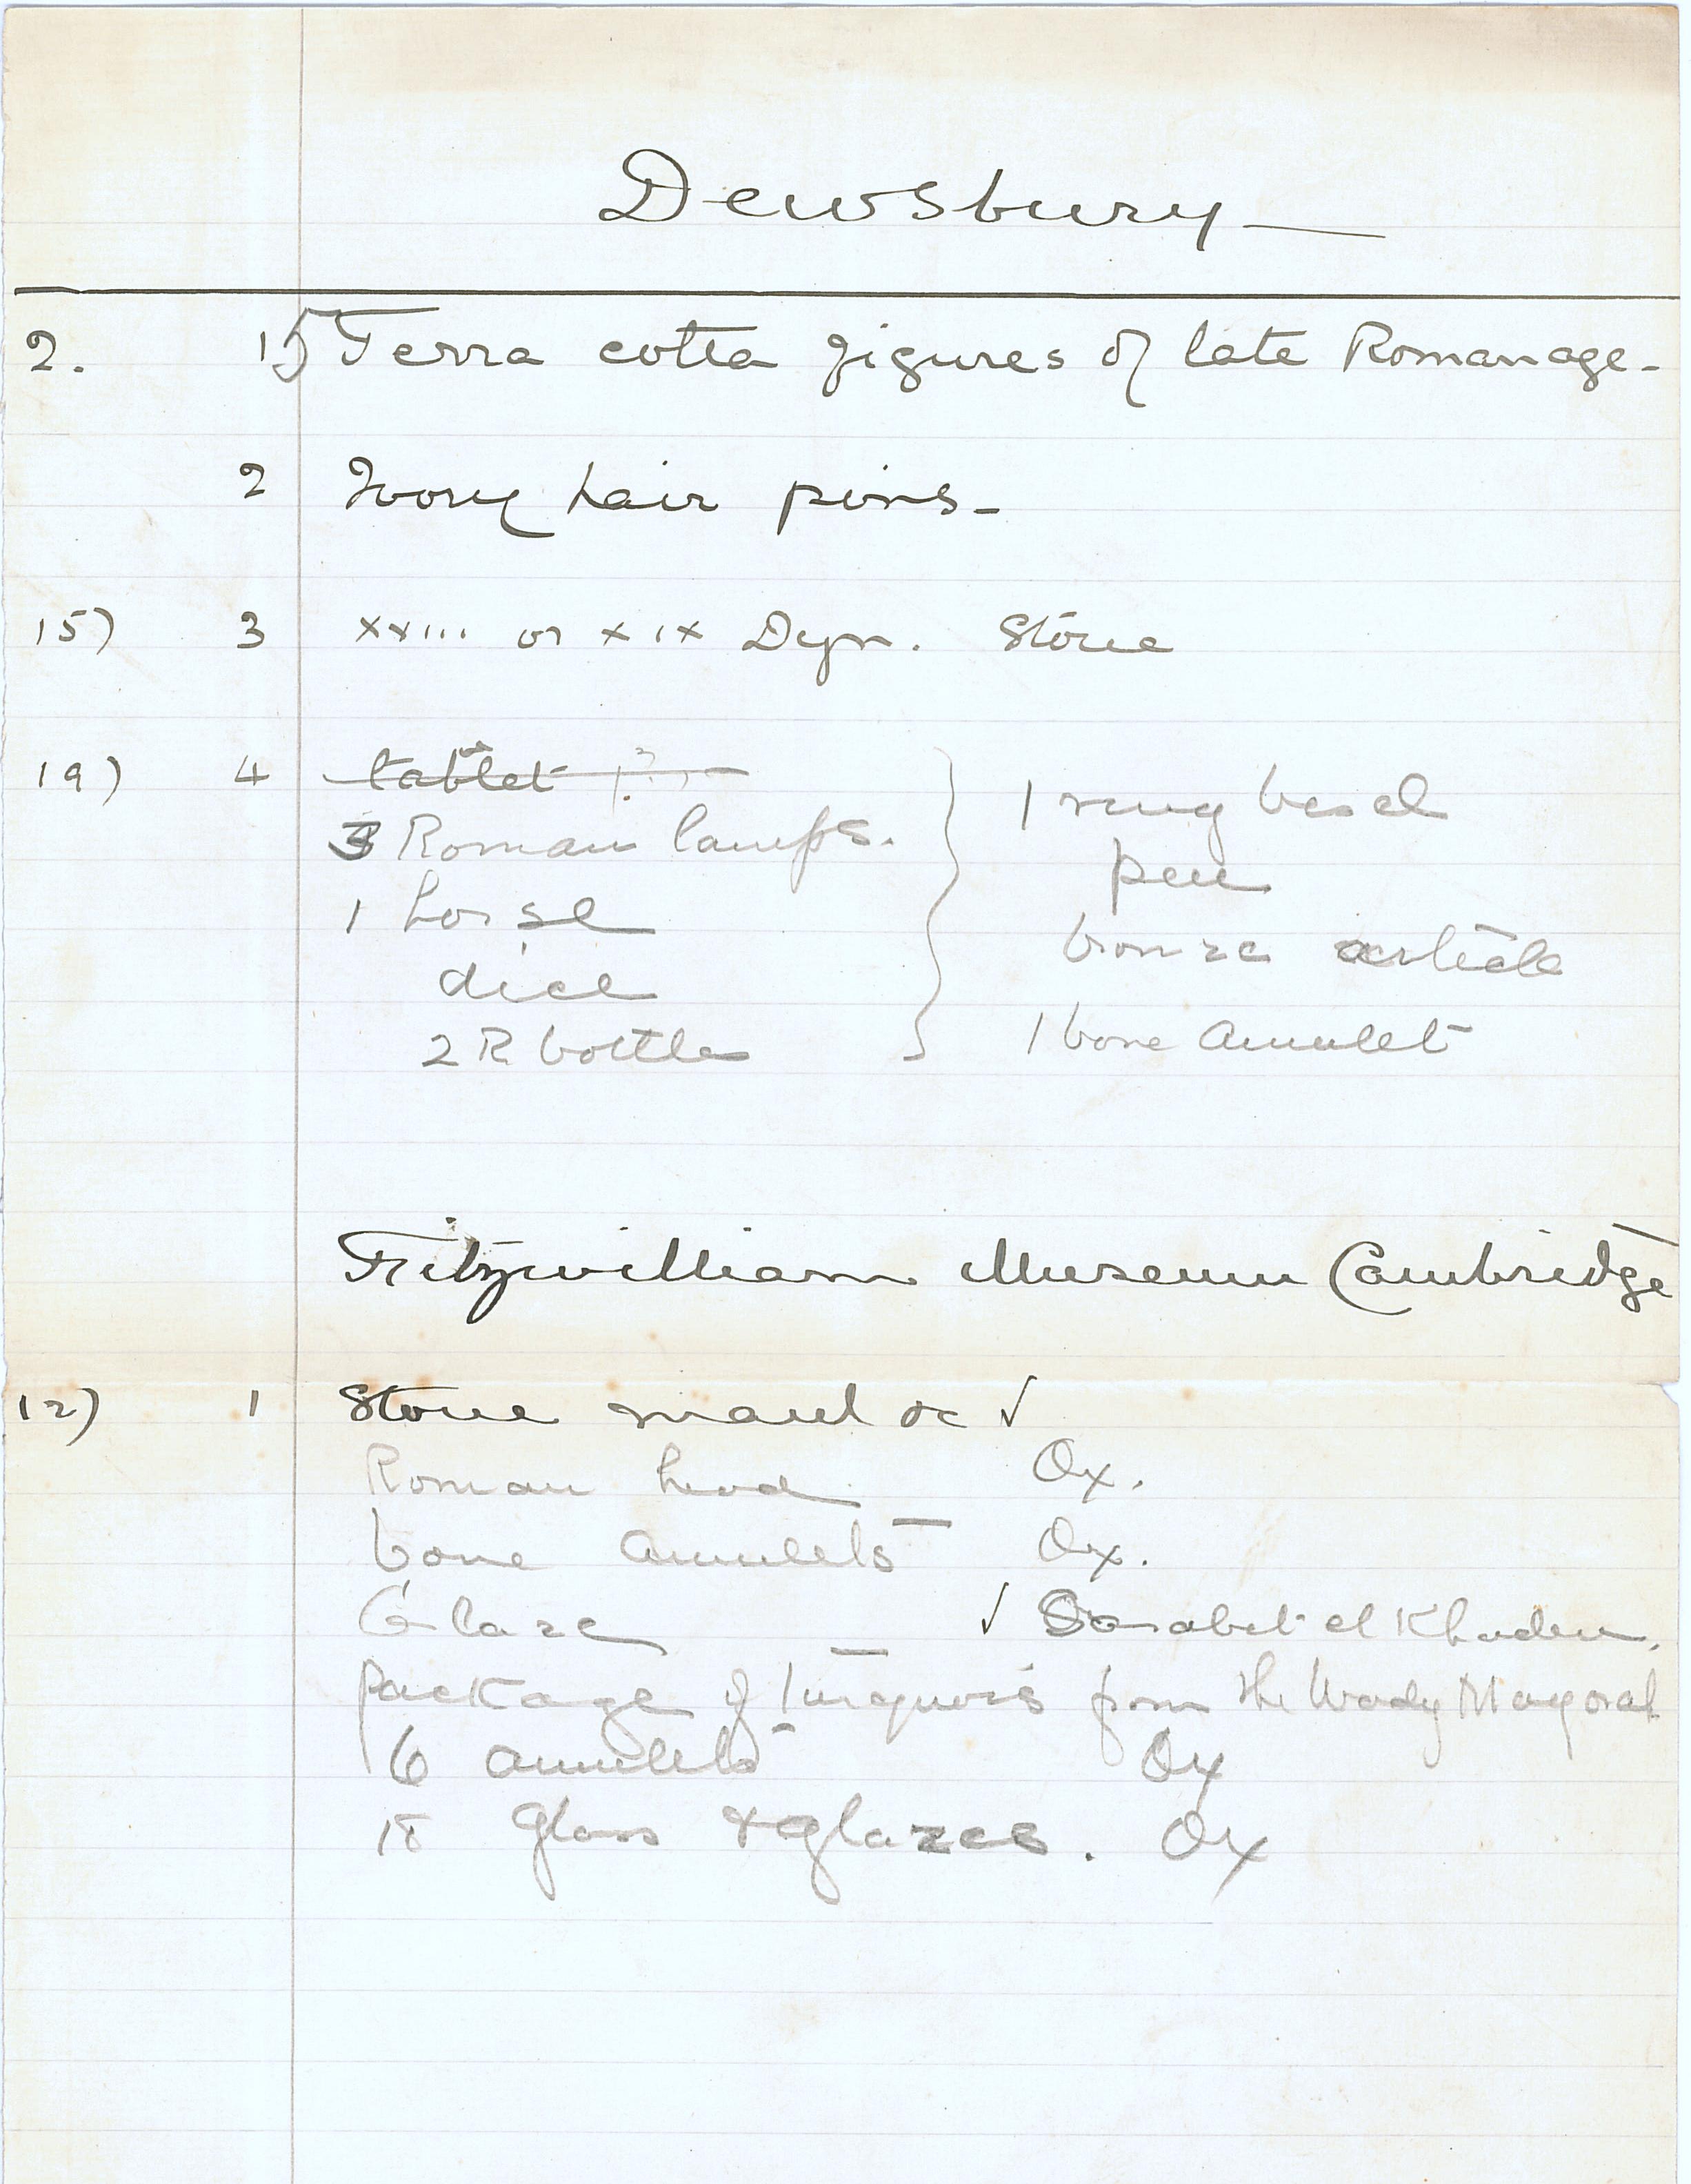 Dewsbury
2. 1) Terra cotta figures of late Roman age-
2 Ivory hair pins-
15) 3 XXIII or XIX Dyn. Stone
19) 4 tablet ?
3 Roman lamps.
1 horse
dice
2 R bottles
1 ring bezel
pen
bronze article
1 bone amulet
Fitzwilliam Museum Cambridge
12) 1 Stone maul &c ✓
Roman head Ox.
bone amulets Ox.
Glaze ✓ Sarabit el Khadem.
package of turquois from the Wady
6 amulets Ox
18 glass & glazes. Ox